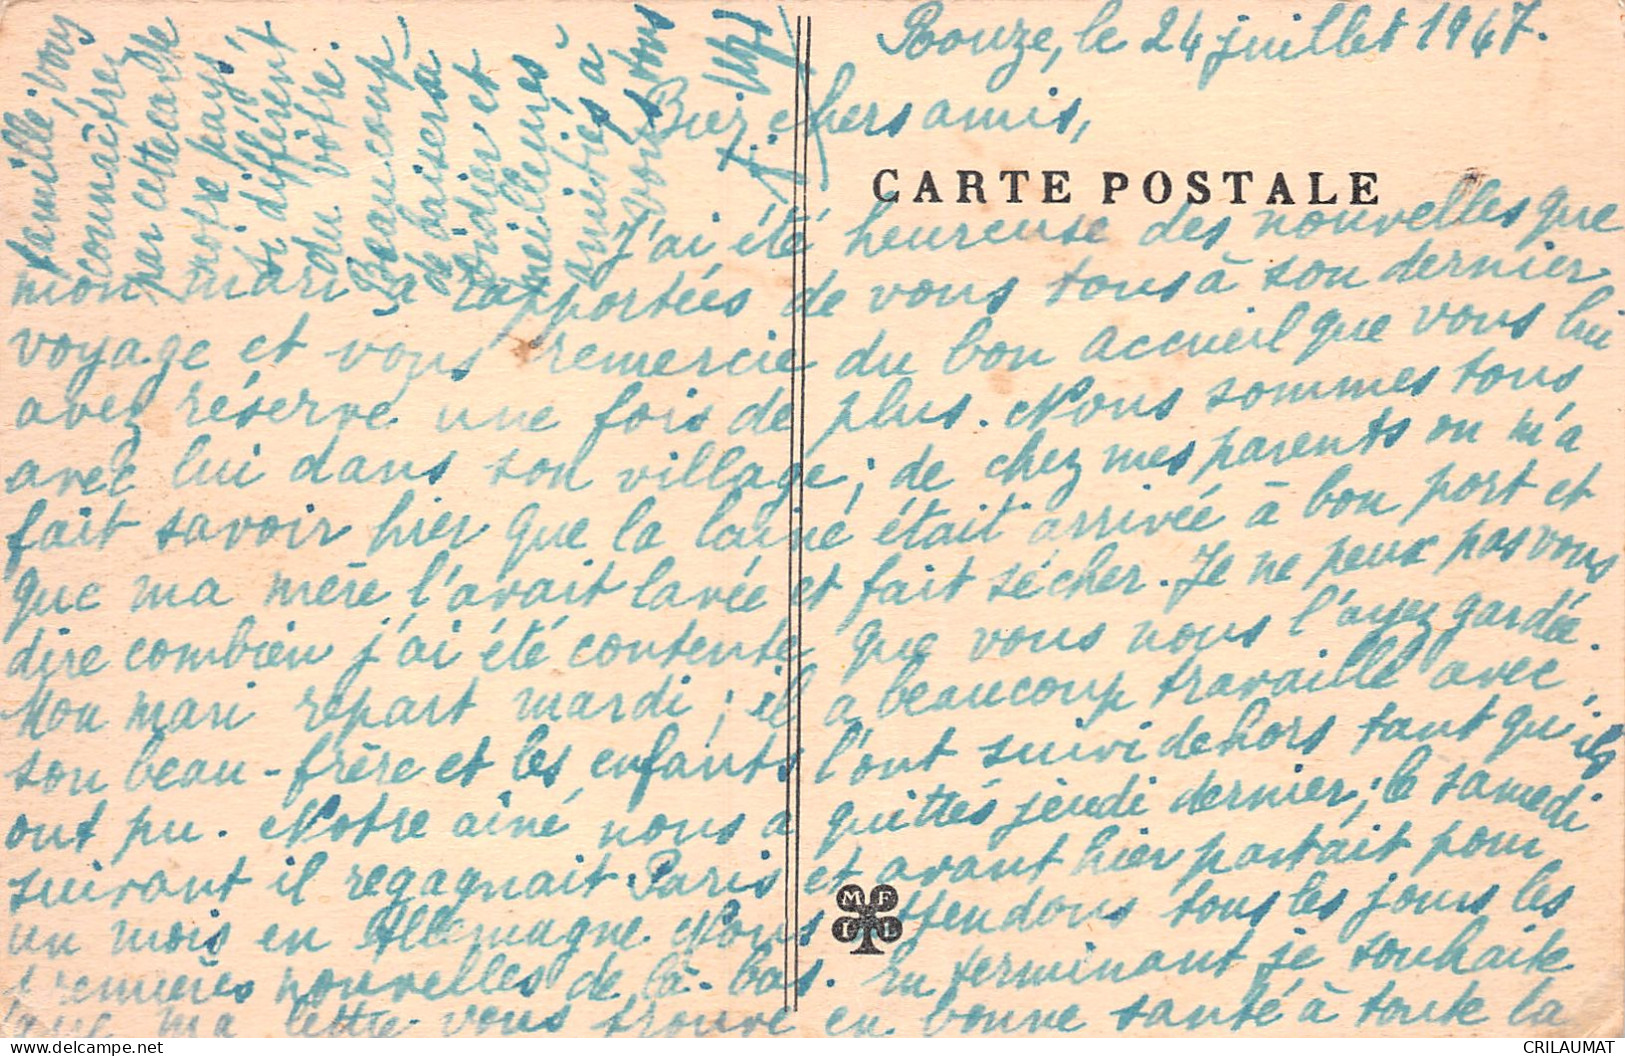 Bouze, le 24 juillet 1947.
Biez chers amis,
CARTE POSTALE
J'ai été heureuse des nouvelles que
mon mari a rapportées de vous tous à son dernier
voyage et vous remercie du bon accueil que vous lui
avez réservé une fois de plus. Nous sommes tous
avec lui dans son village; de chez mes parents on m'a
fait savoir hier que la laine était arrivée à bon port et
que ma mère l'avait lavée et fait sécher. Je ne peux pas vous
dire combien j'ai été contente que vous nous l'ayez gardée.
Mon mari repart mardi; il a beaucoup travaillé avec
son beau-frère et les enfants l'ont suivi dehors tant qu'ils
ont pu. Notre aîné nous a quittés jeudi dernier; le samedi
suivant il regagnait Paris et avant hier partait pour
un mois en Allemagne. Nous attendons tous les jours les
premières nouvelles de là-bas. En terminant je souhaite
que ma lettre vous trouve en bonne santé à toute la
famille. vous
connaîtrez
par cette carte
notre pays
si différent
du vôtre.
Beaucoup
de baisers à
Didier et
meilleures
amitiés à
vous tous
M F
I L
CRILAUMAT